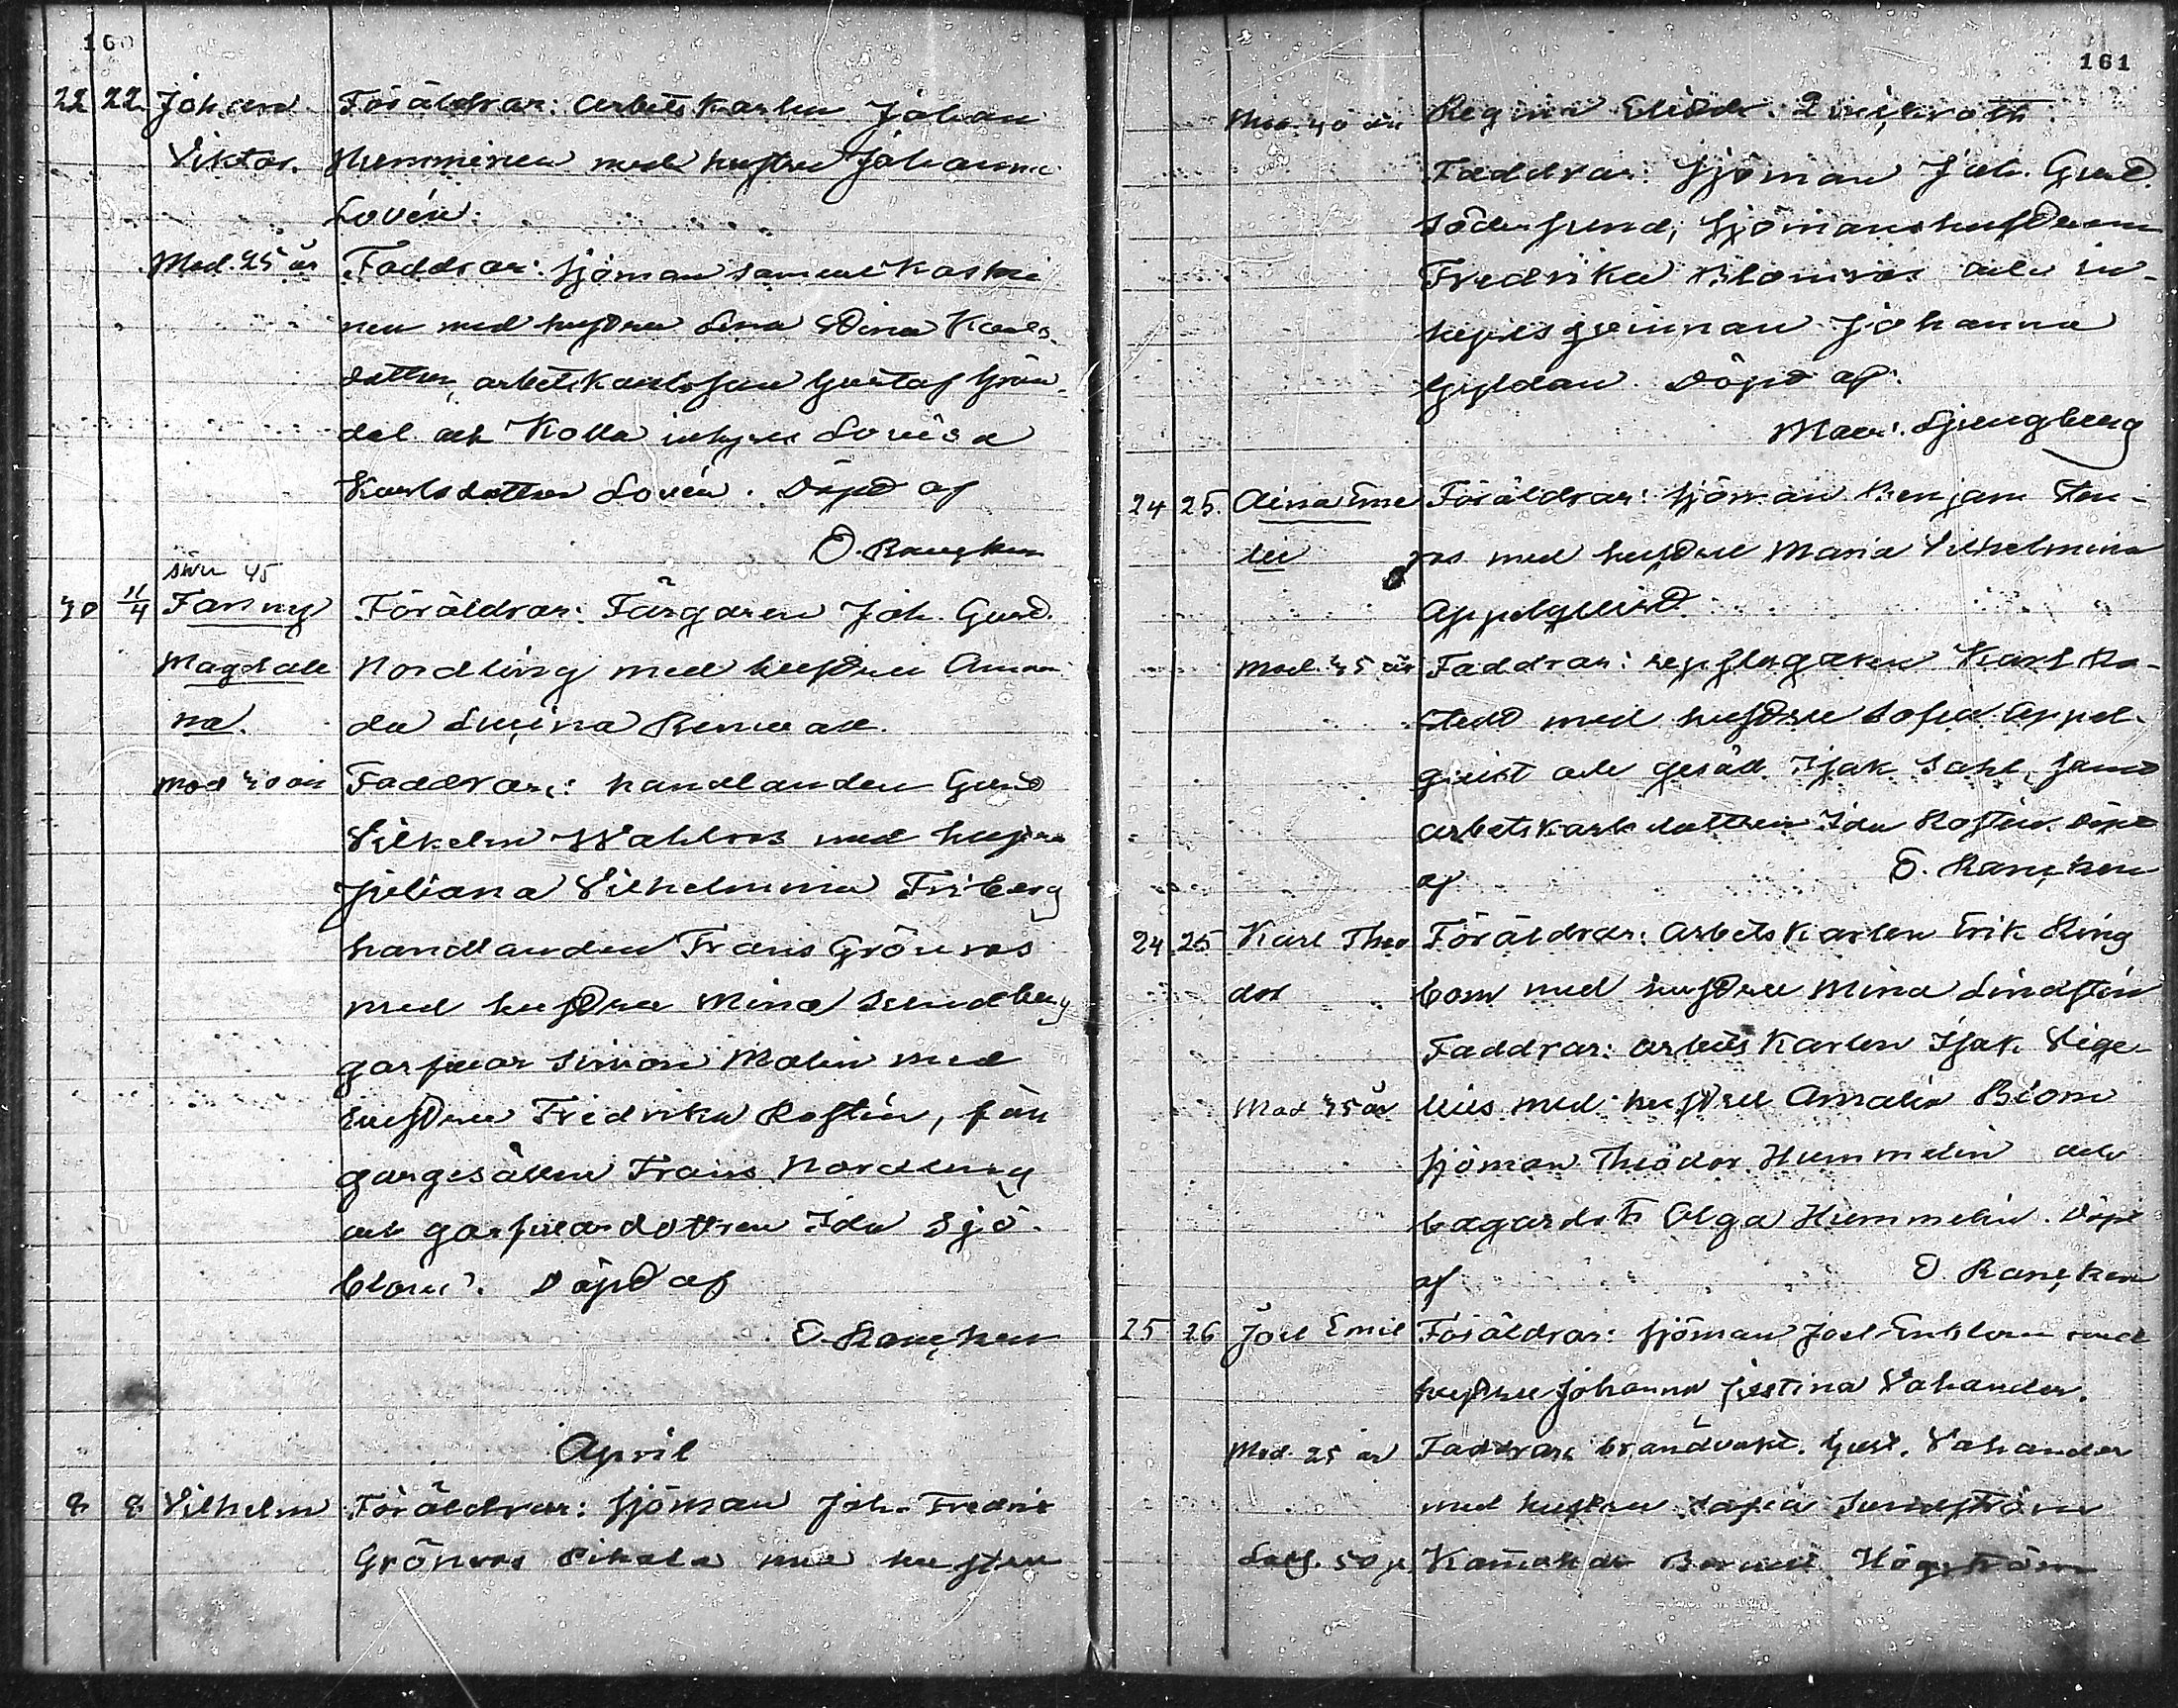 160
22 22 Johan Föräldrar: arbetskarlen Johan
Viktor. Hemminen med hustru Johanna
Lovén.
Mod. 25 år Faddrar: sjöman Samuel Koski
nen med hustru Lena Stina Karls
dotter, arbetskarlsson Gustaf Grön
dal och Kolla inhyses Lovisa
Karlsdotter Lovén. Döpt af
O. Rancken
30 11/4 Fanny Föräldrar: Färgaren Joh. Gust.
Magdale Nordling med hustru Aman
na. da Lucina Renvall.
Mod 40 år Faddrar: handlanden Gust
Vilhelm Wahlros med hustru
Juliana Vilhelmina Friberg
handlanden Frans Grönros
med hustru Mina Sundberg
garfvar Simon Malin med
hustru Fredrika Rostén, fär
garegesällen Frans Nordling
och garfvardottren Ida Sjö
blom. Döpt af
O. Rancken
April
8 8 Vilhelm Föräldrar: sjöman Joh. Fredrik
Grönros Pihala med hustru
161
Mod. 40 år Regina Qvickroth.
Faddrar: sjöman Joh. Gust.
Södersund, sjömanshustrun
Fredrika Blomros och in-
hyses qvinnan Johanna
Gyldan. Döpt af
Maur. Ljungberg
24 25. Aina Eme Föräldrar: sjöman Benjam Sten-
lie ros med hustru Maria Vilhelmina
Appelqvist.
Mod. 35 år Faddrar: repslagaren Karl
stedt med hustru Sofia Appel-
qvist och gesäll Isak Dahl, samt
arbetskarlsdottren Ida Rostén. Döpt
af O. Rancken
24 25 Karl Theo Föräldrar: arbetskarlen Erik Ring
dor bom med hustru Mina Lindstén
Faddrar: arbetskarlen Isak Sige-
Mod 35 år lius med hustru Amalia Blom
sjöman Theodor Hummelin och
bagardr Olga Hummelin. Döpt
af O. Rancken
25 26 Joel Emil Föräldrar: sjöman Joel Enblom med
hustru Johanna Justina Vahander.
Mod 25 år Faddrar: brandvakt. Gust. Vahander
med hustru Sofia Sundström
50 p. Högström